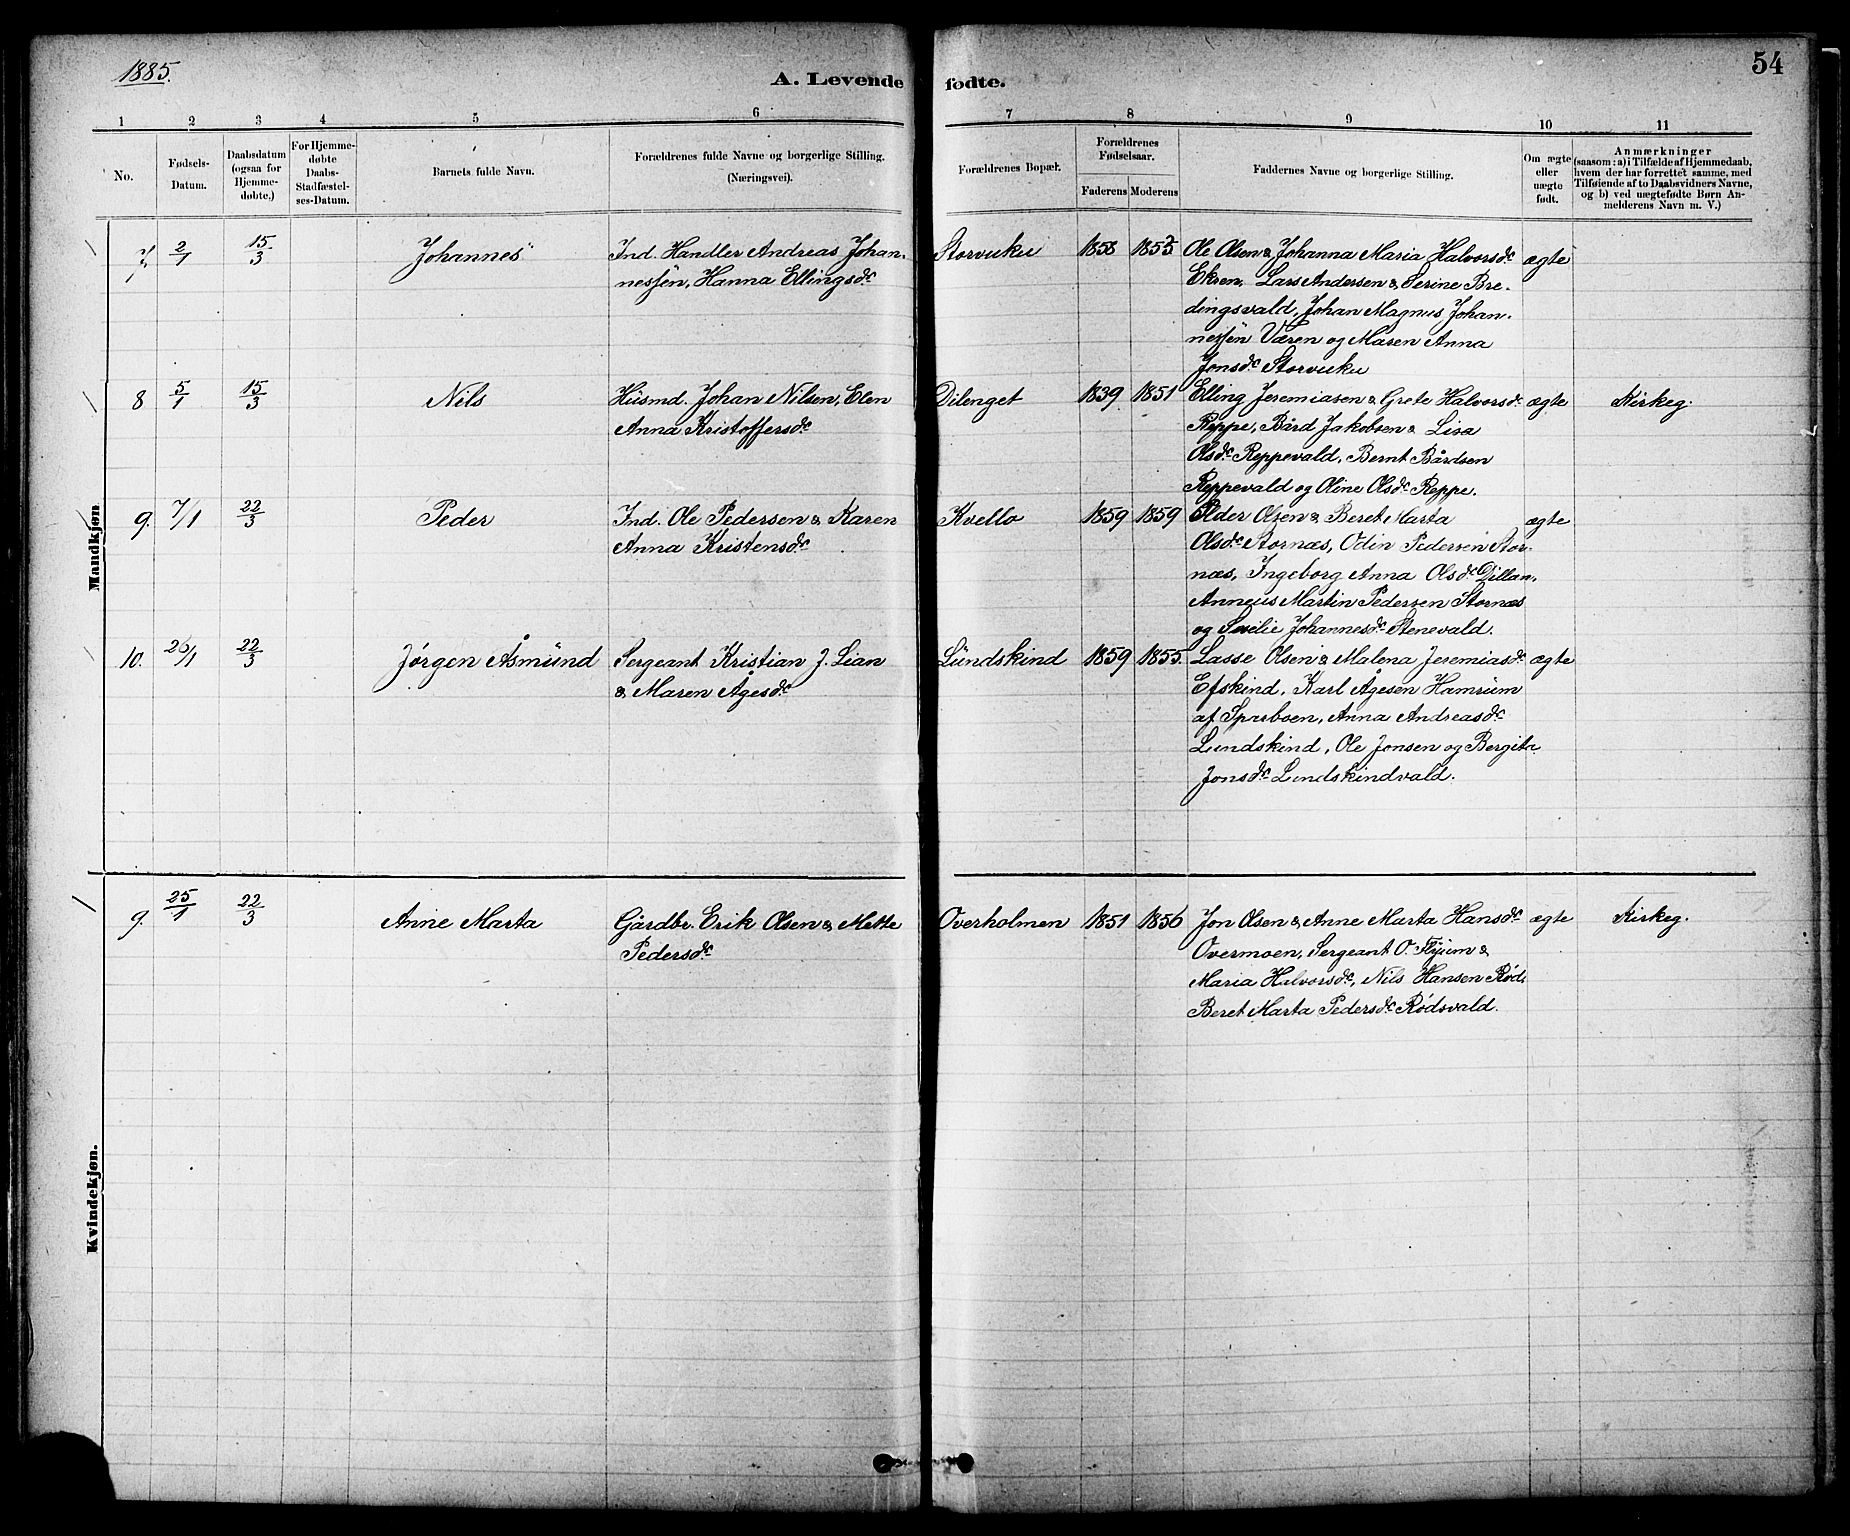 1885.
A. Levende fødte.
54
1 2 3 4 5 6 7 8 9 10 11
No.
Fødsels-
Datum.
Daabsdatum
(ogsaa for
Hjemme-
døbte.)
For Hjemme-
døbte
Daabs-
Stadfæstel-
ses-Datum.
Barnets fulde Navn.
Forældrenes fulde Navne og borgerlige Stilling.
(Næringsvei).
Forældrenes Bopæl.
Forældrenes
Fødselsaar.
Faderens Moderens
Faddernes Navne og borgerlige Stilling.
Om ægte
eller
uægte
født.
Anmærkninger
(saasom: a) i Tilfælde af Hjemmedaab,
hvem der har forrettet samme, med
Tilføiende af to Daabsvidners Navne,
og b) ved uægtefødte Børn An-
melderens Navn m. V.)
Mandkjøn
7. 2/1 15/3 Johannes Ind. Handler Andreas Johan- Storvuku 1858 Ole Olsen & Johanna Maria Halvorsdr ægte
nessen, Hanna Ellingsdr Ekren, Lars Andersen & Serine Bre-
dingsvald, Johan Magnus Johan-
nessen Væren og Maren Anna
Jonsdr Storvuku
8 5/1 15/3 Nils Husmd. Johan Nilsen, Elen Dilenget 1839 1851 Elling Jeremiasen & Grete Halvorsdr ægte Kirkeg.
Anna Kristoffersdr Reppe, Bård Jakobsen & Lisa
Olsdr Reppevald, Bernt Bårdsen
Reppevald og Oline Olsdr Reppe.
9. 7/1 22/3 Peder Ind. Ole Pedersen & Karen Kvello 1859 1859 Peder Olsen & Beret Marta ægte
Anna Kristensdr Olsdr Stornæs, Odin Pedersen Stor-
næs, Ingeborg Anna Olsdr Dillan,
Anneus Martin Pedersen Stornæs
og Johannesdr Stenevald.
10. 26/1 22/3 Jørgen Åsmund Sergeant Kristian J. Lian Lundskind 1859 1855. Lasse Olsen & Malena Jeremiasdr ægte
& Maren Ågesdr Efskind, Karl Ågesen Hamrum
af Sparboen, Anna Andreasdr
Lundskind, Ole Jonsen og Bergita
Jonsdr Lundskindvald.
Kvindekjøn.
9. 25/1 22/3 Anne Marta Gårdbr. Erik Olsen & Mette Overholmen 1851 1856 Jon Olsen & Anne Marta Hansdr ægte Kirkeg.
Pedersdr Overmoen, Sergeant O. Flyum &
Maria Halvorsdr, Nils Hansen Rød,
Beret Marta Pedersdr Rødsvald.